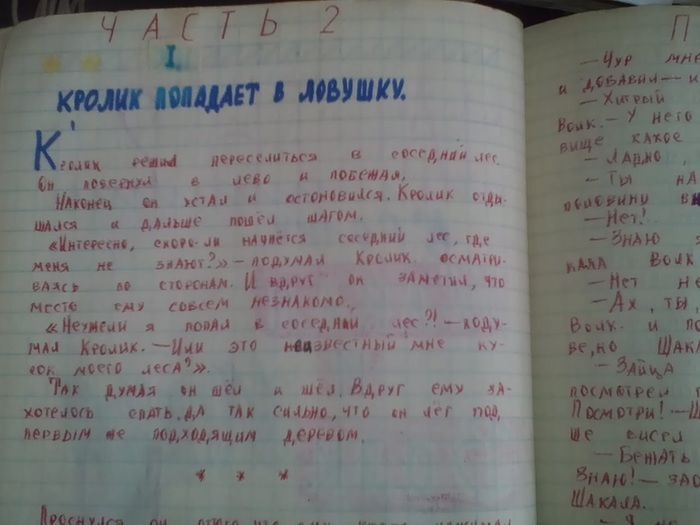 ЧАСТЬ 2
I.
КРОЛИК ПОПАДАЕТ В ЛОВУШКУ.
Кролик решил переселиться в соседний лес.
Он повернул в лево и побежал.
Наконец он устал и остоновился. Кролик отды-
шался и дальше пошёл шагом.
«Интересно, скоро-ли начнётся соседний лес, где
меня не знают?» – подумал Кролик. осматри-
ваясь по сторонам. И вдруг он заметил, что
место ему совсем незнакомо.
«Неужели я попал в соседний лес?! – поду-
мал Кролик. – Или это неизвестный мне ку-
сок моего леса?».
Так думая он шёл и шёл. Вдруг ему за-
хотелось спать, да так сильно, что он лёг под
первым же подходящим деревом.
* * *
Проснулся он оттого, что
П
– Чур мне
и добавил – и
– Хитрый
Волк. – У него
вище какое
– Ладно,
– Ты на
половину
– Нет!
– Знаю
кала Волк
– Нет не
– Ах, ты,
Волк. и по
ве, но Шака
– Зайца
посмотрел
Посмотри! – Ш
ше висел
– Бежать
Знаю! – зао
Шакала.
– Я не